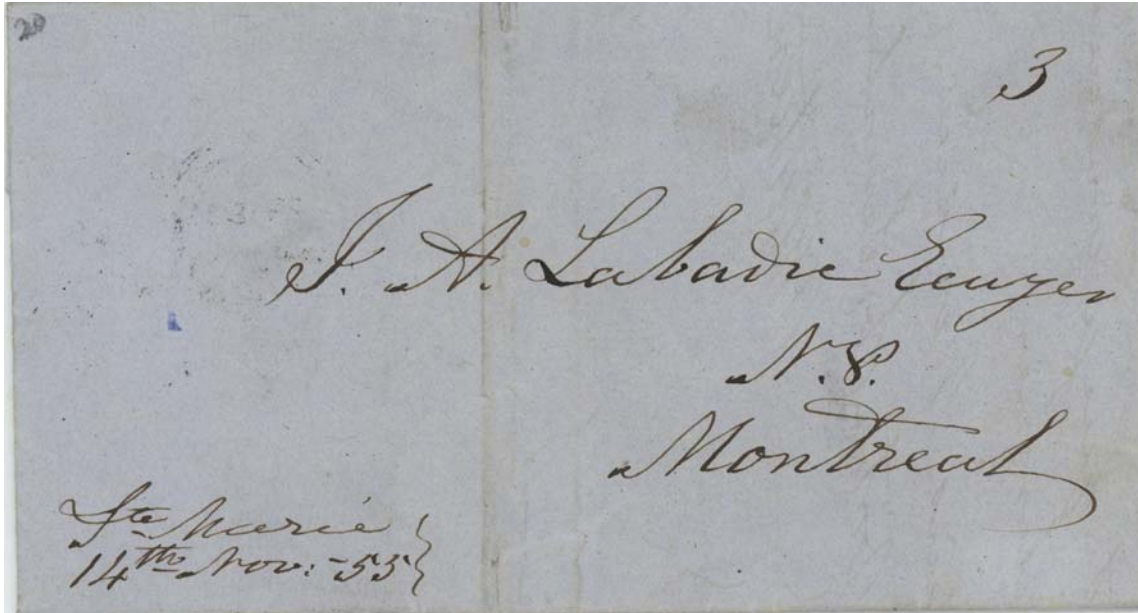 20
3
J. A. Labadie Ecuyer
N.P.
Montreal
Ste Marie
14th Nov: -55